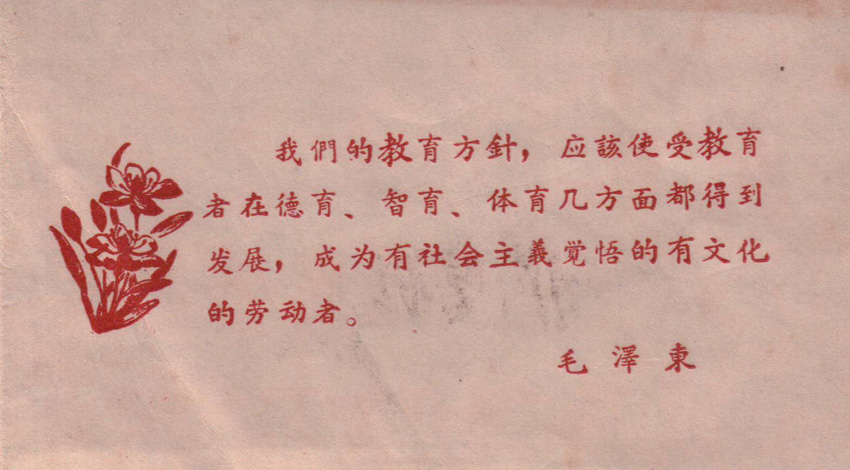 我們的教育方針，应該使受教育
者在德育、智育、体育几方面都得到
发展，成为有社会主義覚悟的有文化
的劳动者。
毛澤東